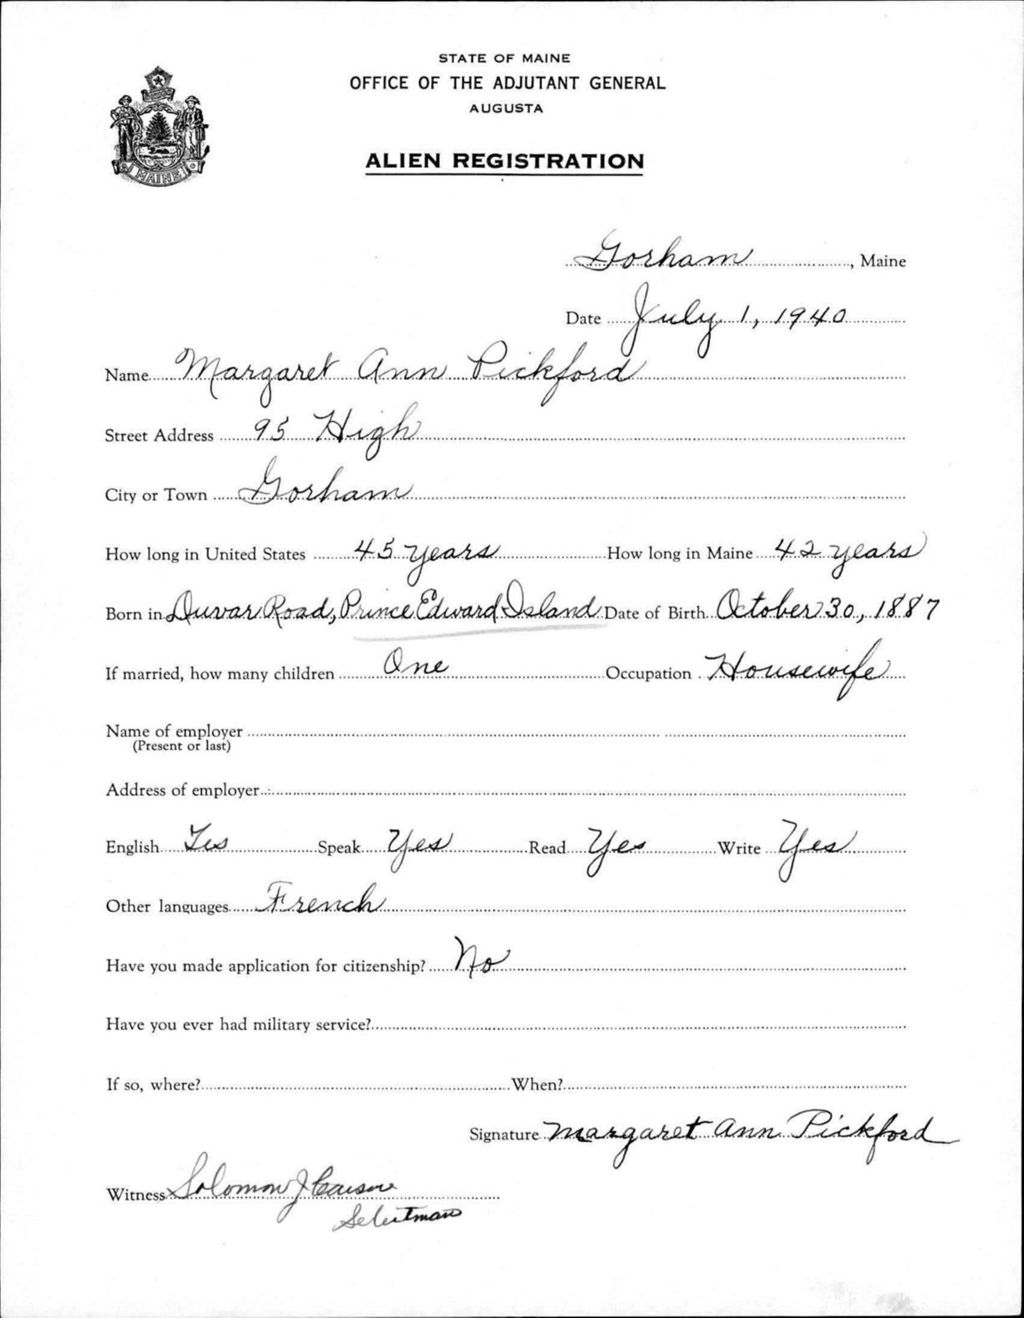 STATE OF MAINE
OFFICE OF THE ADJUTANT GENERAL
AUGUSTA
ALIEN REGISTRATION
MAINE
Gorham, Maine
Date July 1, 1940
Name Margaret Ann Pickford
Street Address 95 High
City or Town Gorham
How long in United States 45 years How long in Maine 42 years
Born in Duvar Road, Prince Edward Island Date of Birth October 30, 1887
If married, how many children One Occupation Housewife
Name of employer
(Present or last)
Address of employer
English Yes Speak Yes Read Yes Write Yes
Other languages French
Have you made application for citizenship? No
Have you ever had military service?
If so, where? When?
Signature Margaret Ann Pickford
Witness Solomon J
Selectman